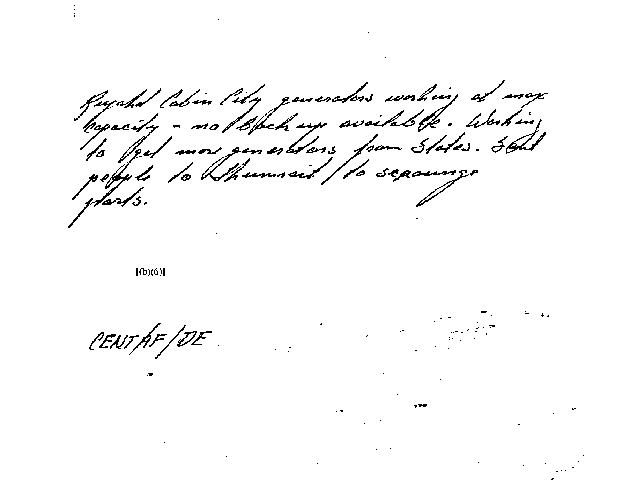 Riyadh Cabin City generators working at max
capacity - no back up available. Working
to get more generators from States. Sent
people to Thumrait to scrounge
parts.
(b)(6)
CENTAF/DE